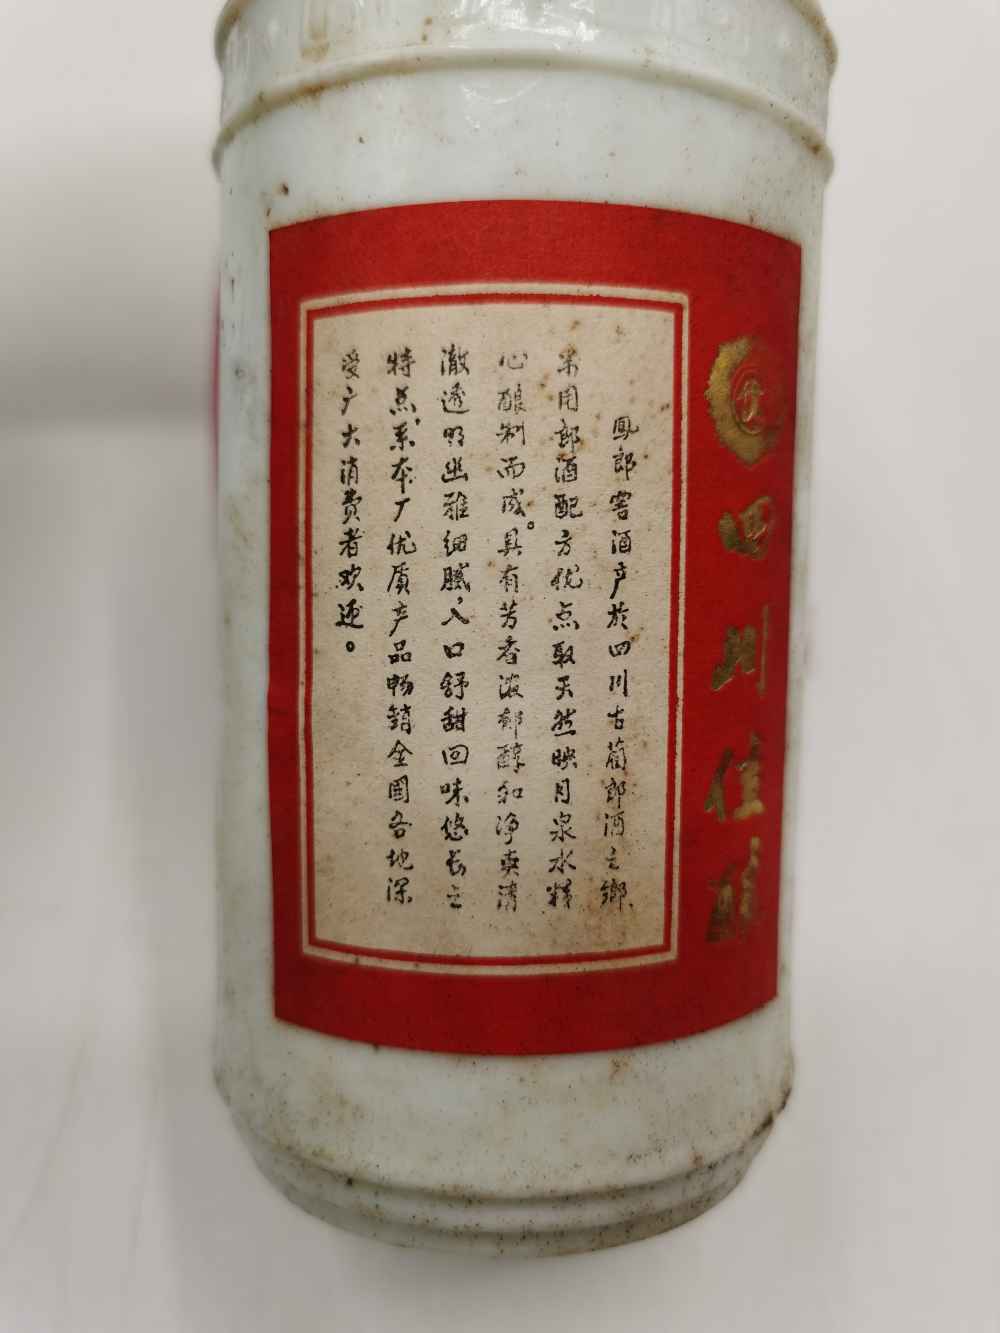 四川佳酿
鳳郎窖酒产於四川古蔺郎酒之鄉
采用郎酒配方优点取天然映月泉水精
心酿制而成。具有芳香浓郁醇和净爽清
澈透明幽雅细腻，入口舒甜回味悠长之
特点，系本厂优质产品畅銷全國各地深
受广大消费者欢迎。